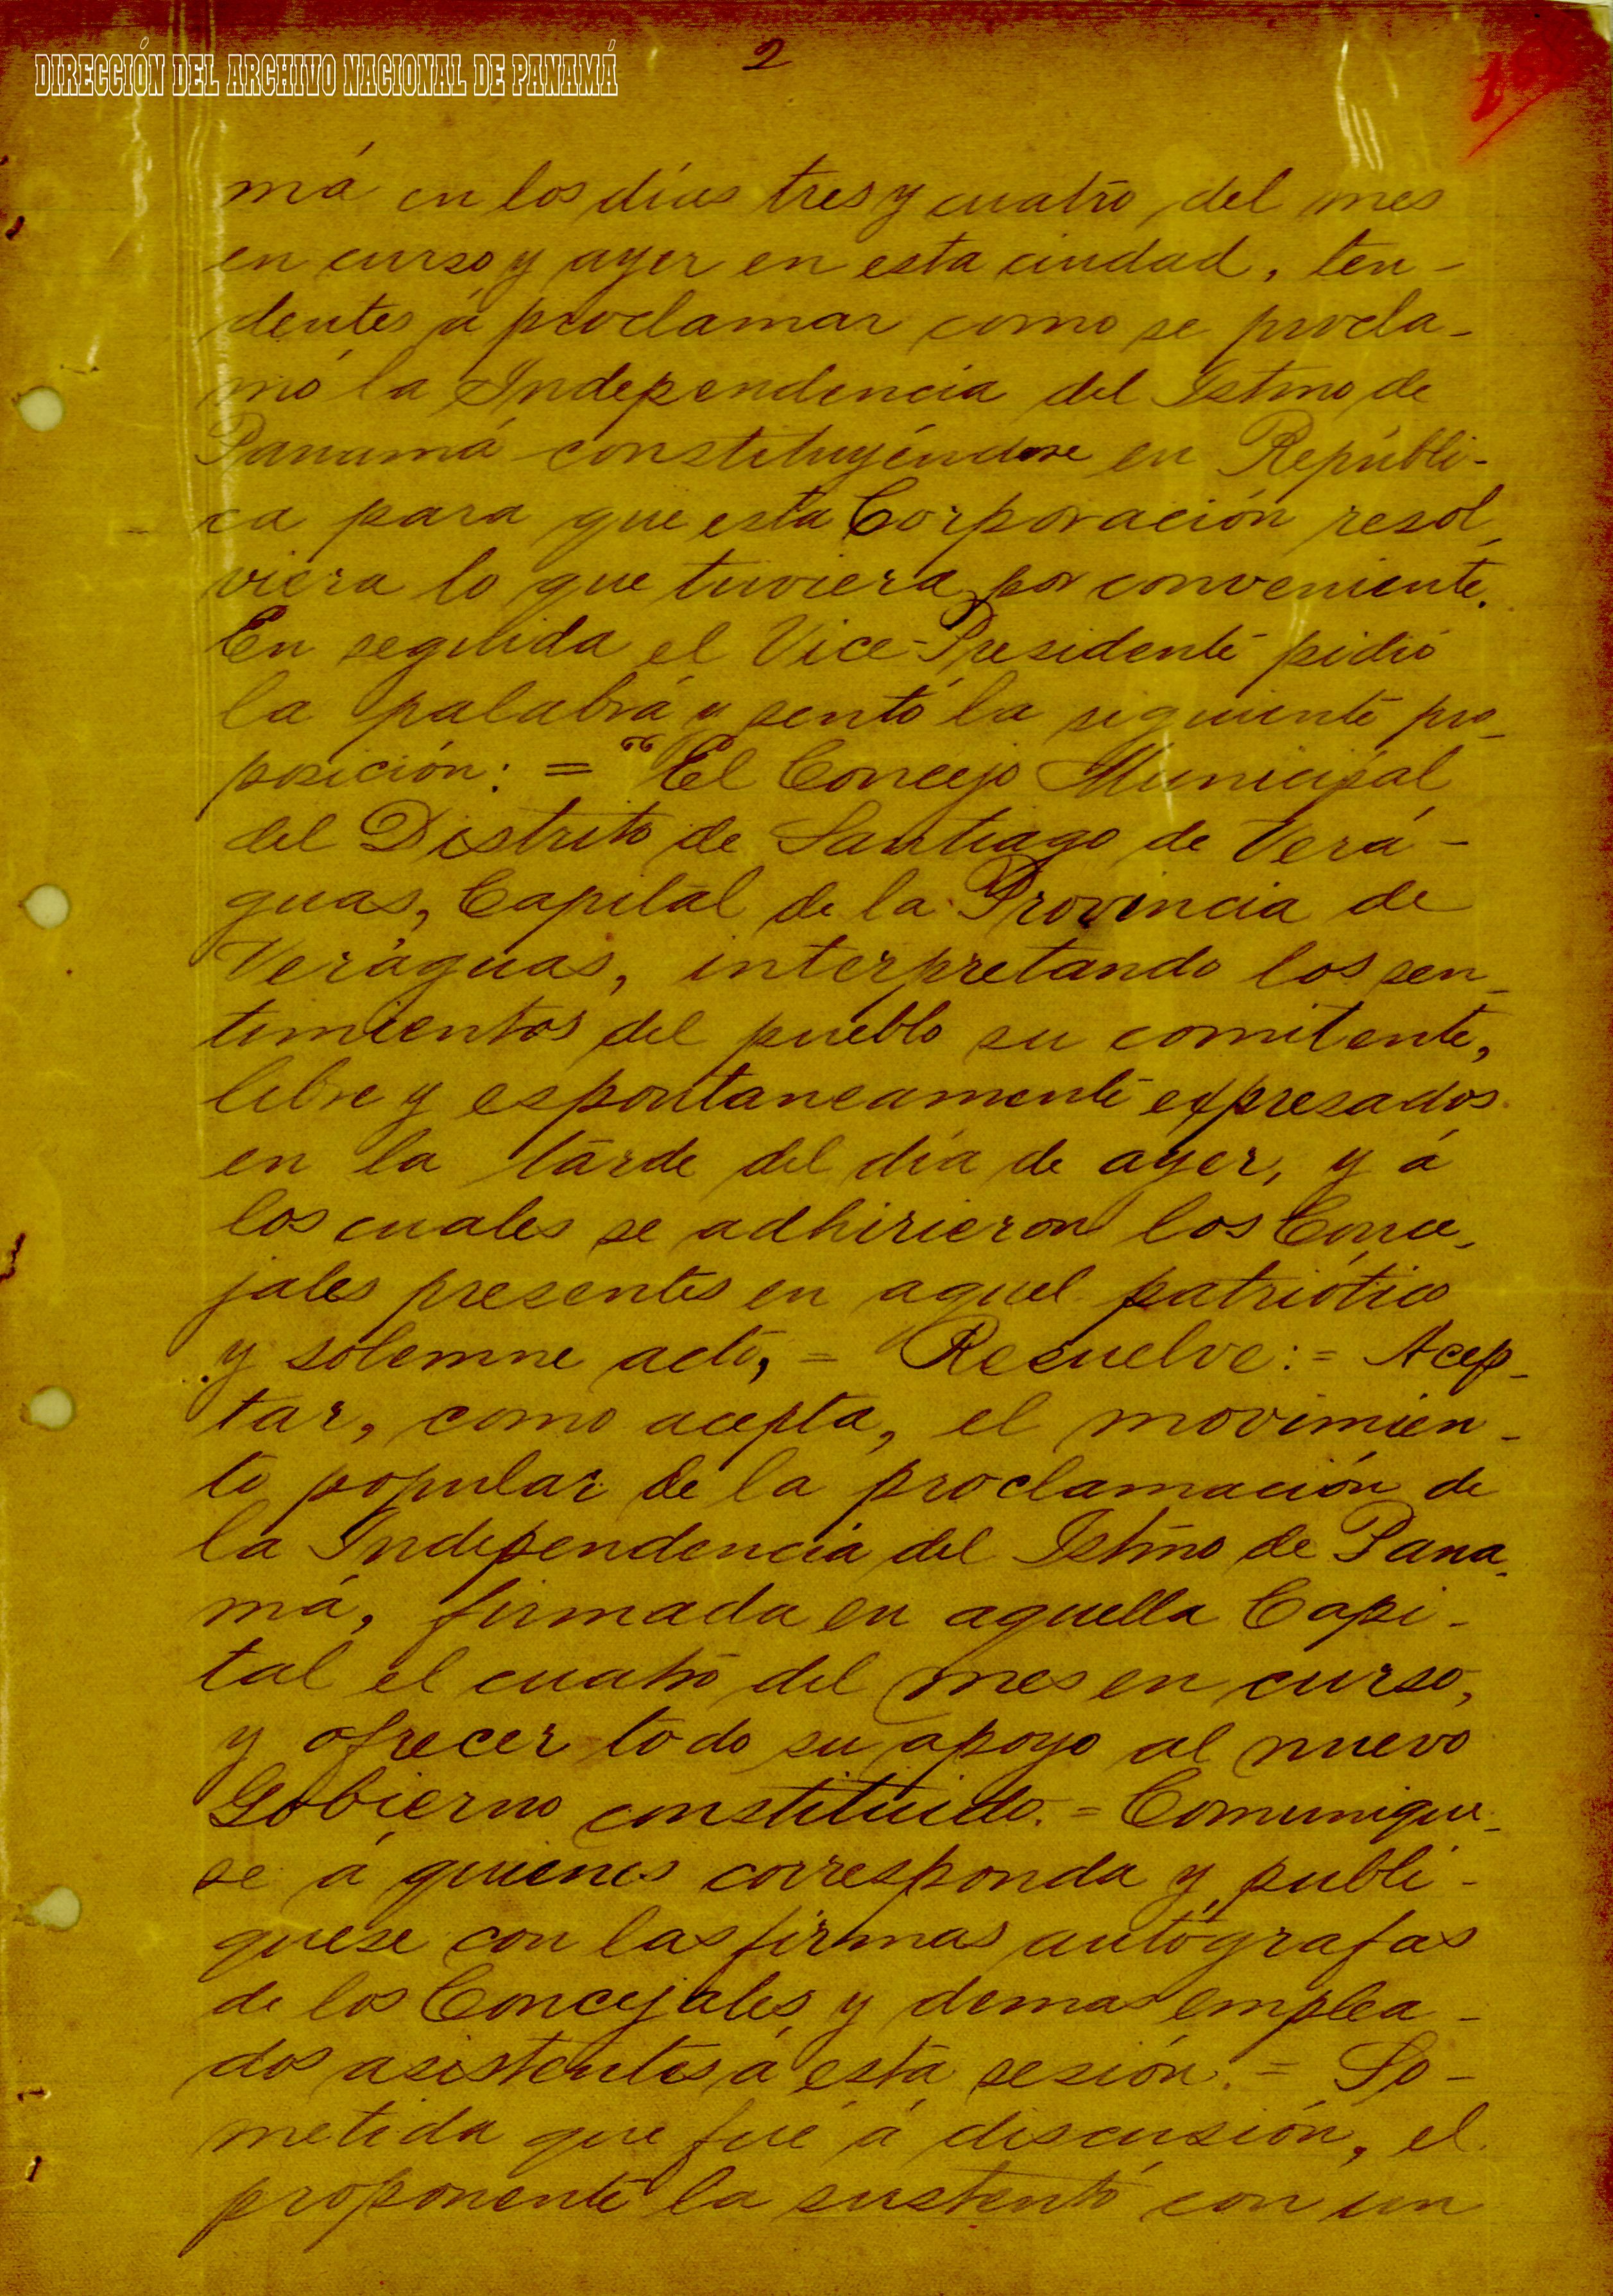 DIRECCIÓN DEL ARCHIVO NACIONAL DE PANAMÁ
2
má en los días tres y cuatro del mes
en curso y ayer en esta ciudad, ten-
dentes á proclamar como se procla-
mó la Independencia del Istmo de
Panamá constituyéndose en Repúbli-
ca para que esta Corporación resol-
viera lo que tuviera por conveniente.
En seguida el Vice-Presidente pidió
la palabra y sentó la siguiente pro-
posición: = "El Concejo Municipal
del Distrito de Santiago de Verá-
guas, Capital de la Provincia de
Veráguas, interpretando los sen-
timientos del pueblo su comitente,
libre y espontaneamente expresados
en la tarde del día de ayer, y á
los cuales se adhirieron los Conce-
jales presentes en aquel patriótico
y solemne acto, = Resuelve: = Acep-
tar, como acepta, el movimien-
to popular de la proclamación de
la Independencia del Istmo de Pana-
má, firmada en aquella Capi-
tal el cuatro del mes en curso,
y ofrecer todo su apoyo al nuevo
Gobierno constituido. = Comunique-
se á quienes corresponda y publi-
quese con las firmas autógrafas
de los Concejales y demas emplea-
dos asistentes á esta sesión. = So-
metida que fué á discusión, el
proponente la sustentó con un